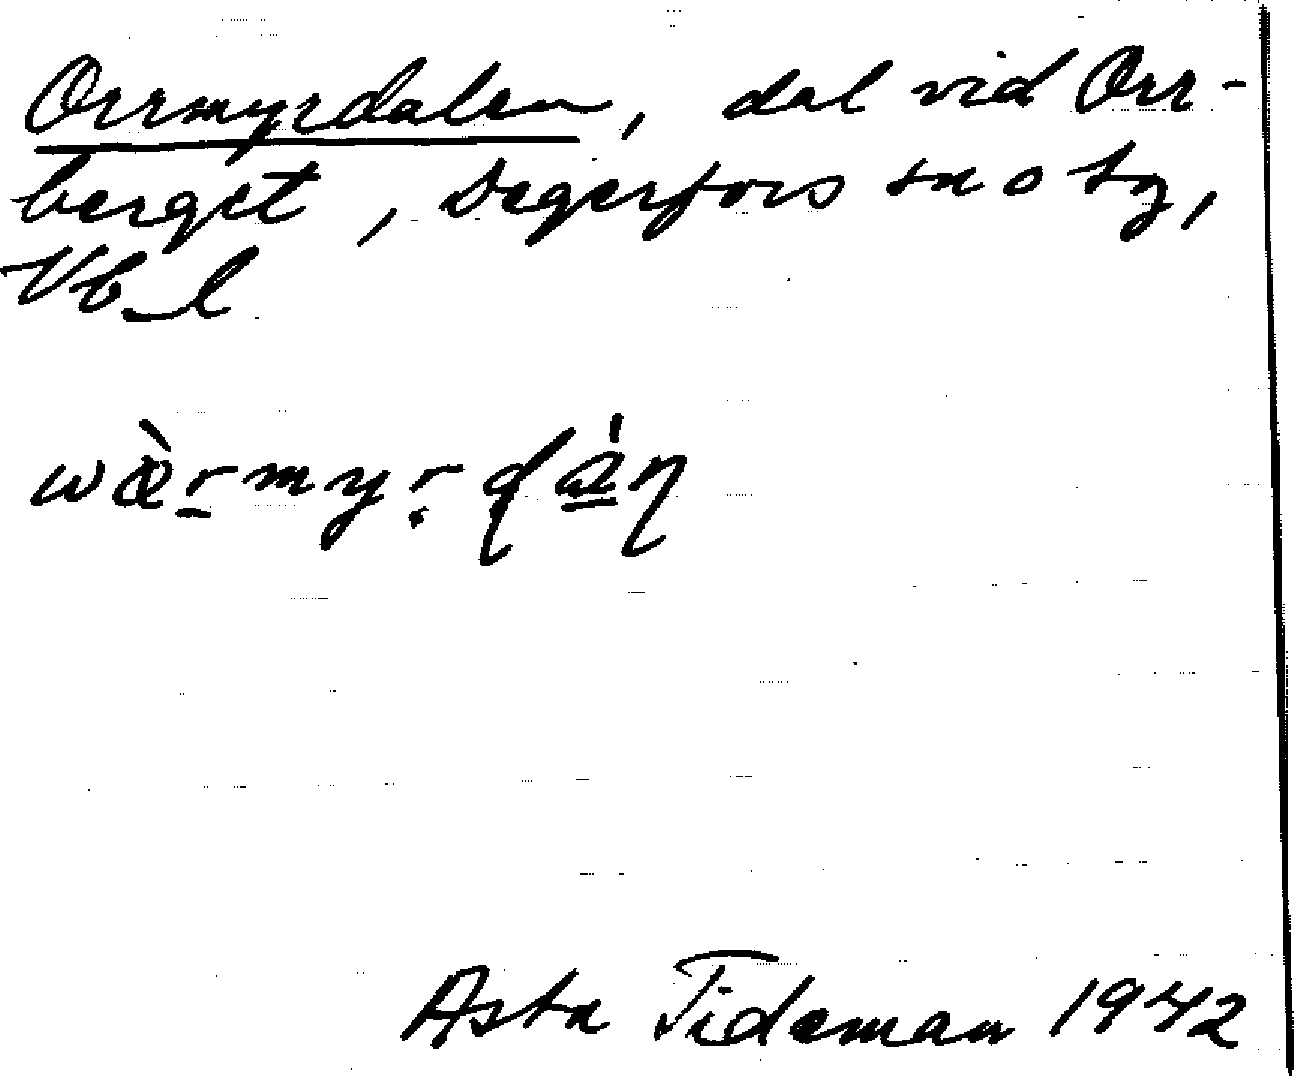 Orrmyrdalen, dal vid Orr-
berget, Degerfors sn o tg,
Vb l
wæ̀r̠myṛɖa̠̍ɳ
Asta Tideman 1942